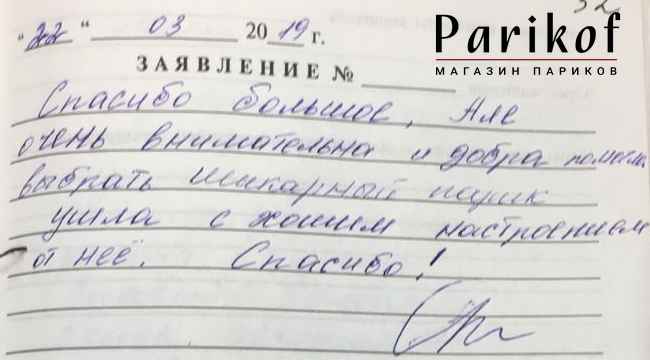 32
Parikof
МАГАЗИН ПАРИКОВ
"22" 03 2019 г.
ЗАЯВЛЕНИЕ №
Спасибо большое, Але
очень внимательна и добра помогла
выбрать шикарный парик
ушла с хошим настроением
от неё. Спасибо!